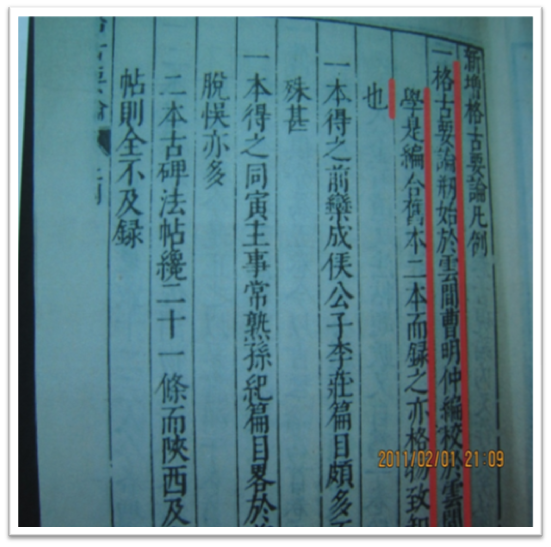 新增格古要論凡例
一格古要論刱始於雲間曹明仲編校於雲間
學是編合舊本二本而録之亦格物致知
也
一本得之前欒成侯公子李莊篇目頗多
殊甚
一本得之同寅主事常熟孫紀篇目畧於
脫悮亦多
二本古碑法帖纔二十一條而陝西及
帖則全不及録
古要論
2011/02/01 21:09